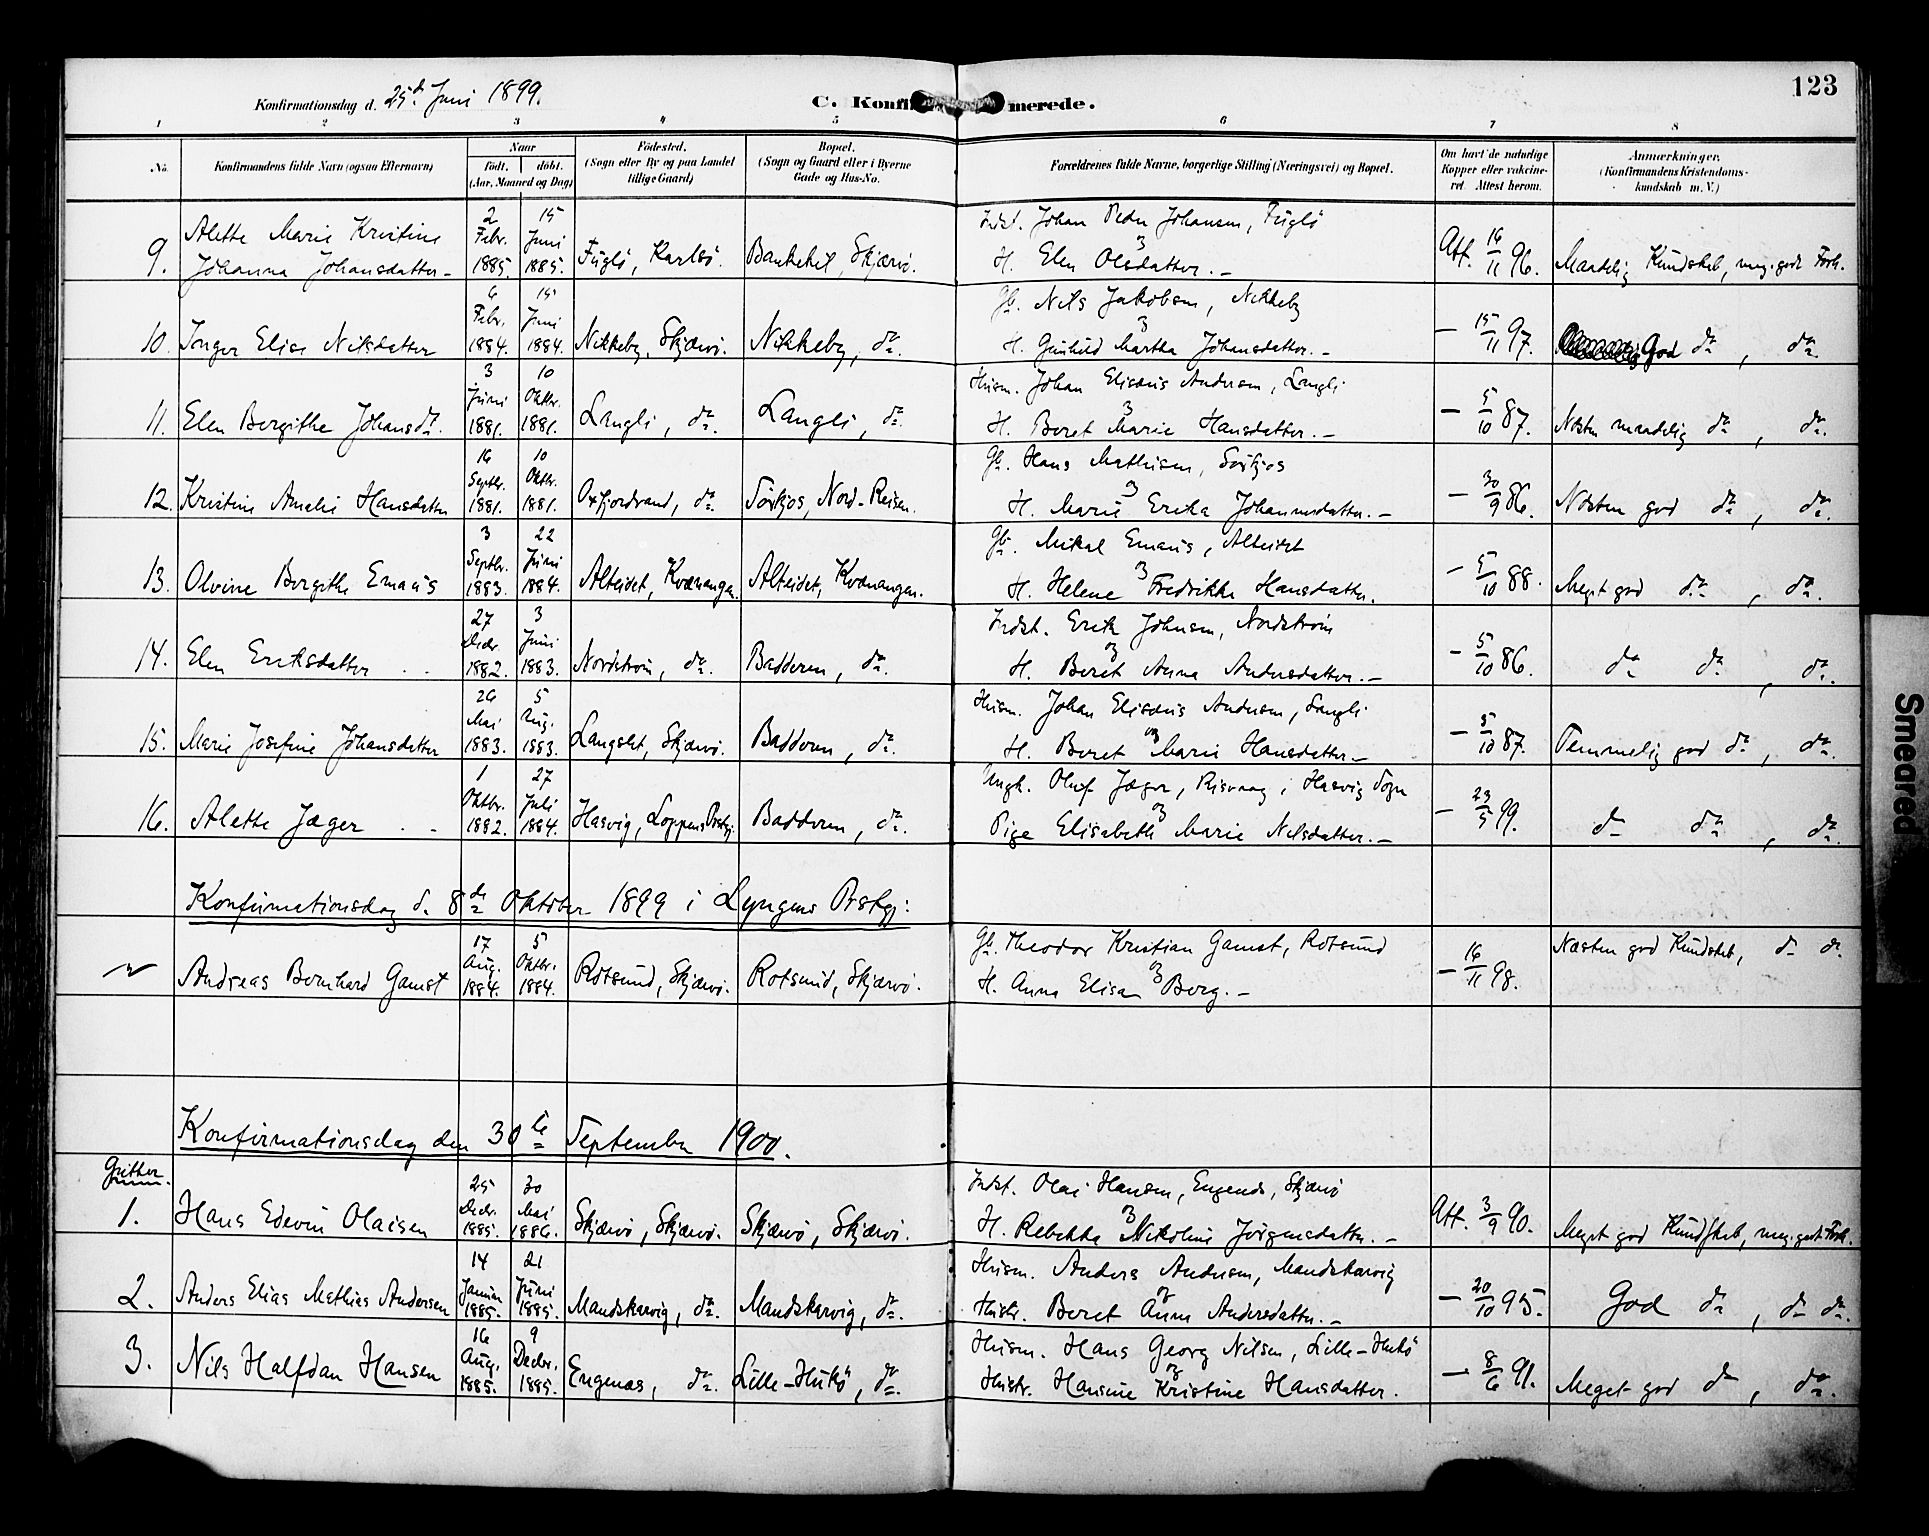 123
Konfirmationsdag d. 25de Juni 1899.
C. Konfirmerede.
1 2 3 4 5 6 7 8
No. Konfirmandens fulde Navn (ogsaa Efternavn) Naar født. døbt. (Aar, Maaned og Dag) Fødested. (Sogn eller By og paa Landet tillige Gaard) Bopæl. (Sogn og Gaard eller i Byerne Gade og Hus-No. Forældrenes fulde Navne, borgerlige Stilling (Næringsvei) og Bopæl. Om havt de naturlige Kopper eller vakcineret. Attest herom. Anmærkninger. (Konfirmandens Kristendomskundskab m. V.)
9. Alette Marie Kristine Johanna Johansdatter 2 Febr. 1885. 15 Juni 1885. Fuglø, Karlsø. Bankekil, Skjærvø. Indst. Johan Peder Johansen, Fuglø og H. Elen Olsdatter. Att. 16/11 96. Maadelig Kundskab, meg. godt Forh.
10. Inger Elise Nilsdatter 6 Febr. 1884. 15 Juni 1884. Nikkeby, Skjærvø. Nikkeby, do. Gb. Nils Jakobsen, Nikkeby og H. Gunhild Martha Johansdatter. — 15/11 97. God do, do
11. Elen Bergithe Johansdt. 3 Juni 1881. 10 Oktbr. 1881. Langli, do. Langli, do. Husm. Johan Elisæus Andersen, Langli og H. Beret Marie Hansdatter. — 5/10 87. Næsten maadelig do, do.
12. Kristine Amalie Hansdatter 16 Septbr. 1881. 10 Oktbr. 1881. Oxfjordvand, do. Sørkjos, Nord-Reisen. Gb. Hans Mathisen, Sørkjos og H. Marie Erika Johannesdatter. — 30/9 86. Næsten god do, do.
13. Olvine Bergithe Emaus 3 Septbr. 1883. 22 Juni 1884. Alteidet, Kvænangen. Alteidet, Kvænangen. Gb. Mikal Emaus, Alteidet og H. Helene Fredrikke Hansdatter. — 5/10 88. Meget god do, do.
14. Elen Eriksdatter 27 Decbr. 1882. 3 Juni 1883. Nordstrøm, do. Badderen, do. Indst. Erik Johnsen, Nordstrøm og H. Beret Anna Andersdatter. — 5/10 86. do do, do.
15. Marie Josefine Johansdatter 26 Mai 1883. 5 Aug. 1883. Langslet, Skjærvø. Badderen, do. Husm. Johan Elisæus Andersen, Langli og H. Beret Marie Hansdatter — 5/10 87. Temmelig god do, do.
16. Alette Jæger 1 Oktbr. 1882. 27 Juli 1884. Hasvig, Loppens Prstgj. Badderen, do. Ungk. Oluf Jæger, Risvaag i Hasvig Sogn og Pige Elisabeth Marie Nilsdatter. — 23/5 99. do do, do.
Konfirmationsdag d. 8de Oktober 1899 i Lyngens Prstgj:
Andreas Bernhard Gamst 17 Aug. 1884. 5 Oktbr. 1884. Rotsund, Skjærvø. Rotsund, Skjærvø. Gb. Theodor Kristian Gamst, Rotsund og H. Anna Elisa Berg. — 16/11 98. Næsten god Kundskab, do do.
Konfirmationsdag den 30te September 1900.
Gutter.
1. Hans Edevin Olaisen 25 Decbr. 1885. 30 Mai 1886. Skjærvø, Skjærvø. Skjærvø, Skjærvø. Indst. Olai Hansen, Engenæs, Skjærvø og H. Rebekka Nikoline Jørgensdatter. Att. 3/9 90. Meget god Kundskab, meg. godt Forh.
2. Anders Elias Mathias Andersen 14 Januar 1885. 21 Juni 1885. Mandskarvig, do. Mandskarvig, do. Husm. Anders Andersen, Mandskarvig og Hustr. Beret Anna Andersdatter. — 20/10 95. God do, do do.
3. Nils Halfdan Hansen 16 Aug. 1885. 9 Decbr. 1885. Engenæs, do. Lille-Hukø, do. Husm. Hans Georg Nilsen, Lille-Hukø og Hustr. Hansine Kristine Hansdatter. — 8/6 91. Meget god do, do.
Smeared